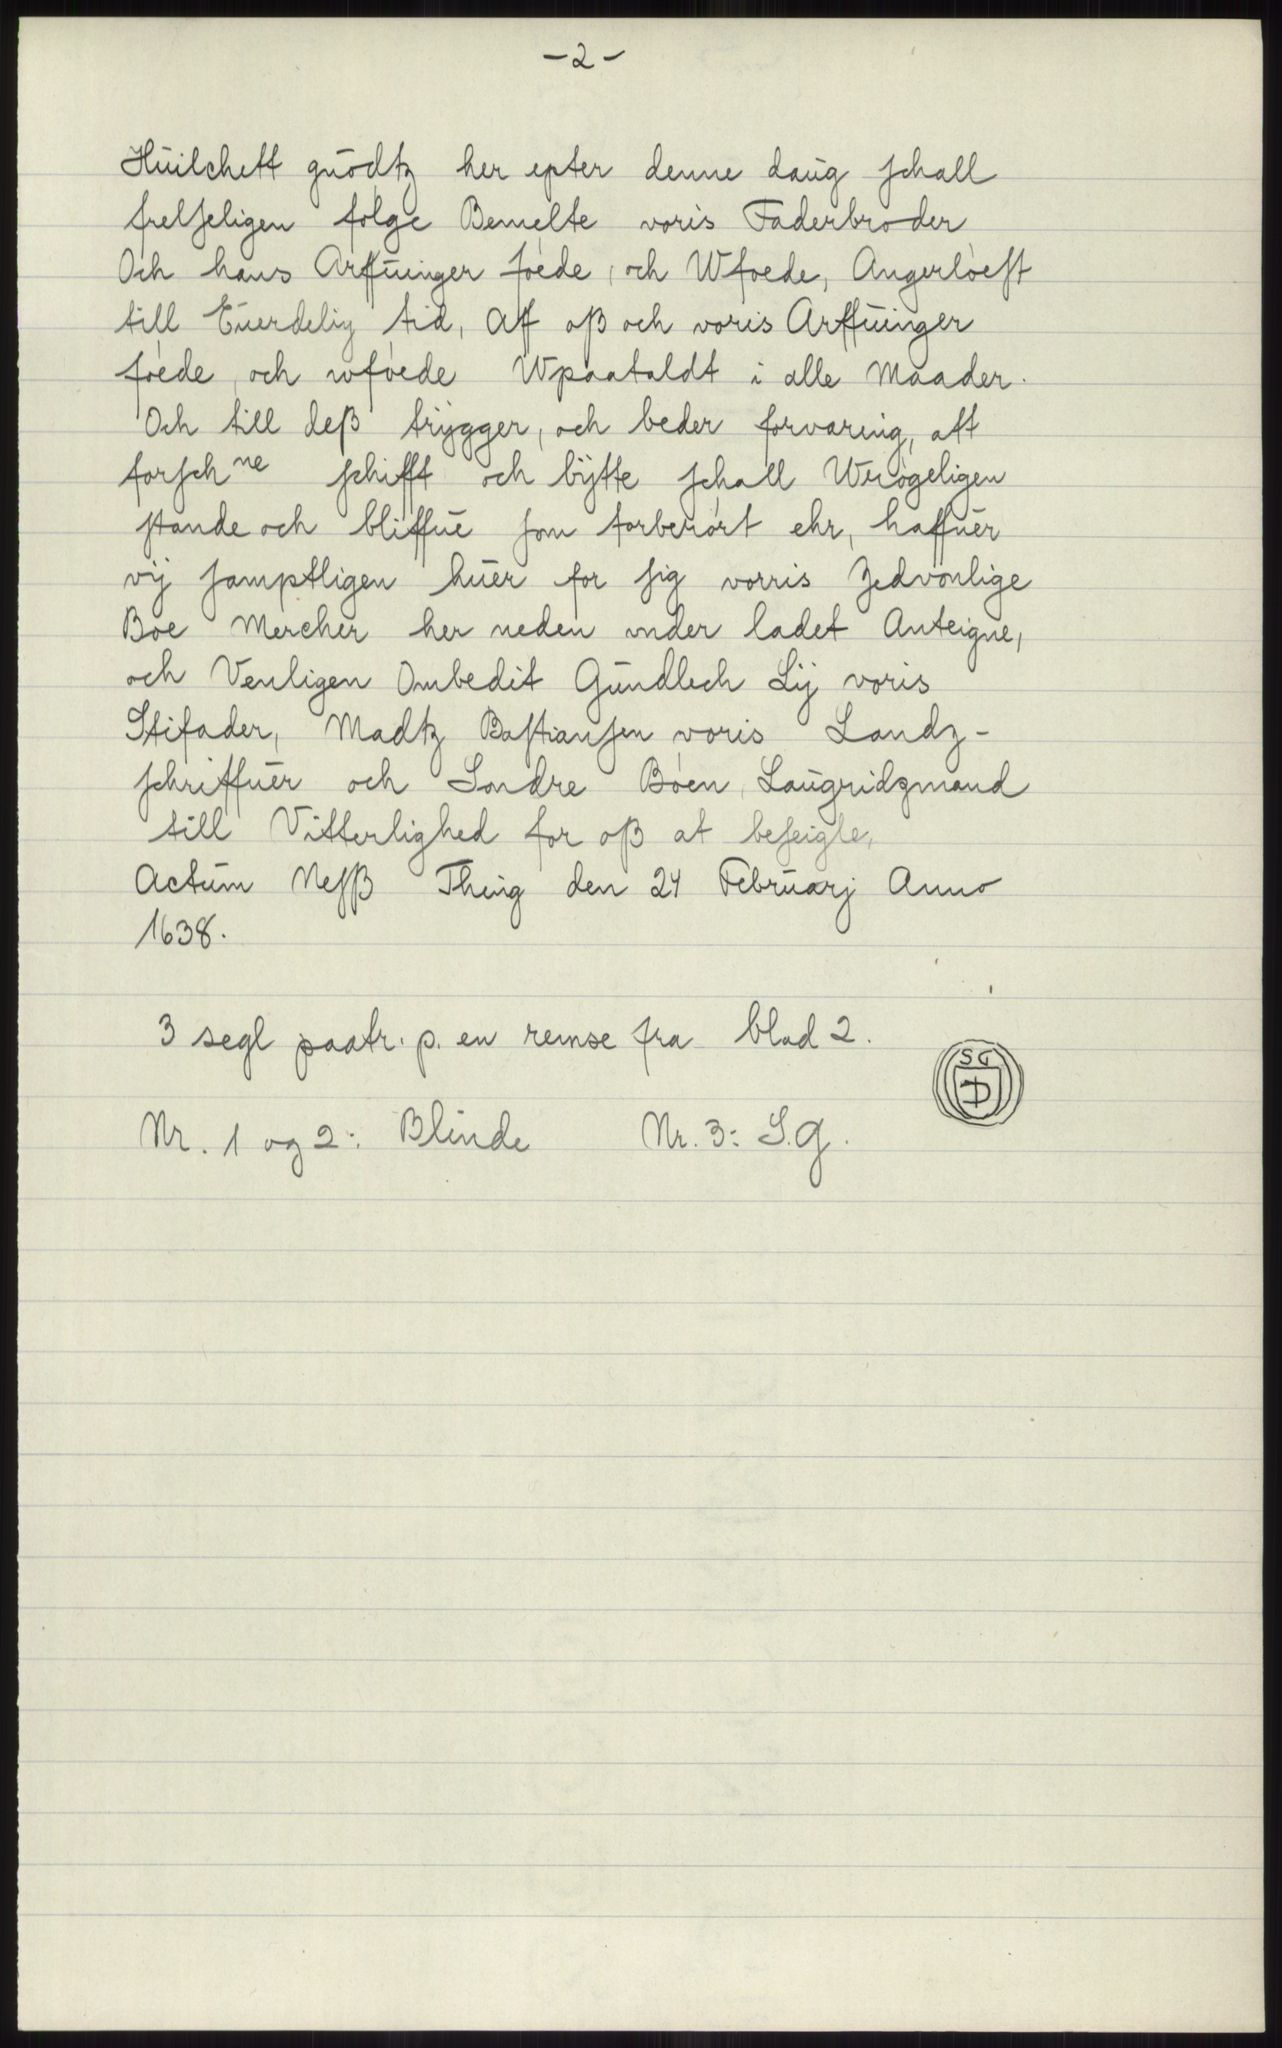 -2-
Huilchett guodtz her epter denne daug schall
frelseligen følge Bemelte voris Faderbroder
Och hans Arffuinger foede, och Wfoede, Angerløest
till Euerdelig tid, Aff oß och voris Arffuinger
føede, och wføede Wpaataldt i alle Maader.
Och till deß trÿgger, och beder forvaring, att
forschne schifft och bÿtte schall Wrøgeligen
stande och bliffue som forberørt ehr, haffuer
vij samptligen huer for sig vorris Zedvonlige
Boe Mercher her neden vnder ladet Anteigne,
och Venligen Ombedit Gundlech Lij voris
Stifader, Madtz Bastiansen voris Landz-
schriffuer och Sondre Bøen Laugridzmand
till Vitterlighed for oß at beseigle,
Actum Nesß Thing den 24 Februarj Anno
1638.
3 segl paatr. p. en remse fra blad 2.
SG
Nr. 1 og 2: Blinde Nr. 3: S.G.